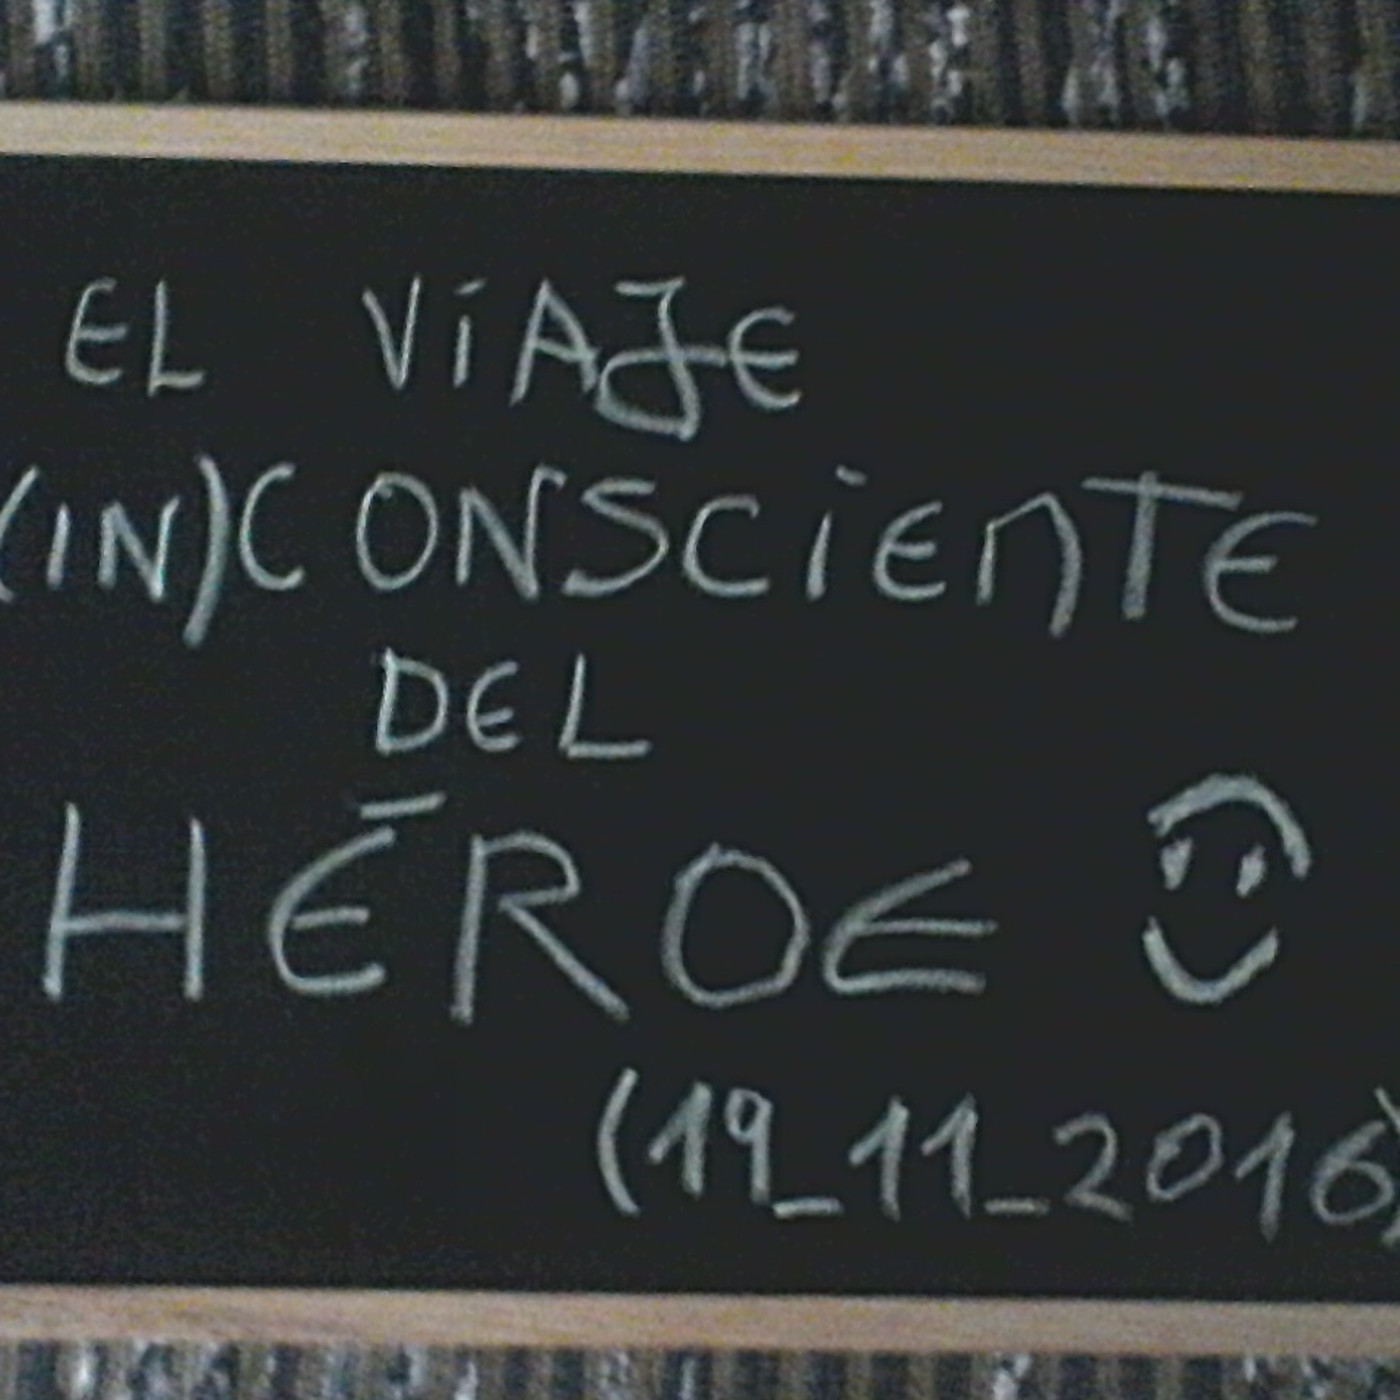 EL VIAJE
(IN)CONSCIENTE
DEL
HÉROE
(19_11_2016)